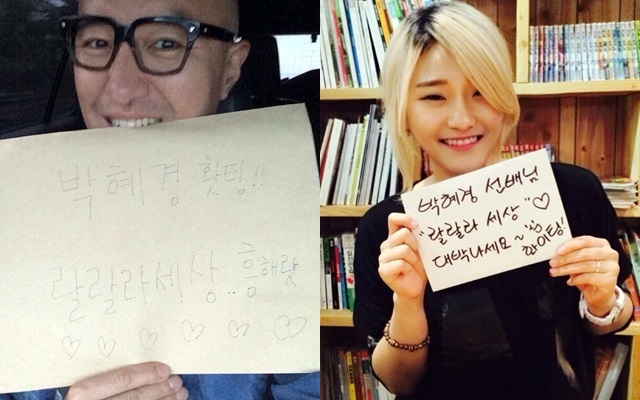 박혜경 홧팅!!
랄랄라세상.. 흥해랏
♡ ♡ ♡ ♡ ♡ ♡
박혜경 선배님
"랄랄라 세상"♡
대박나세요~^^
화이팅!